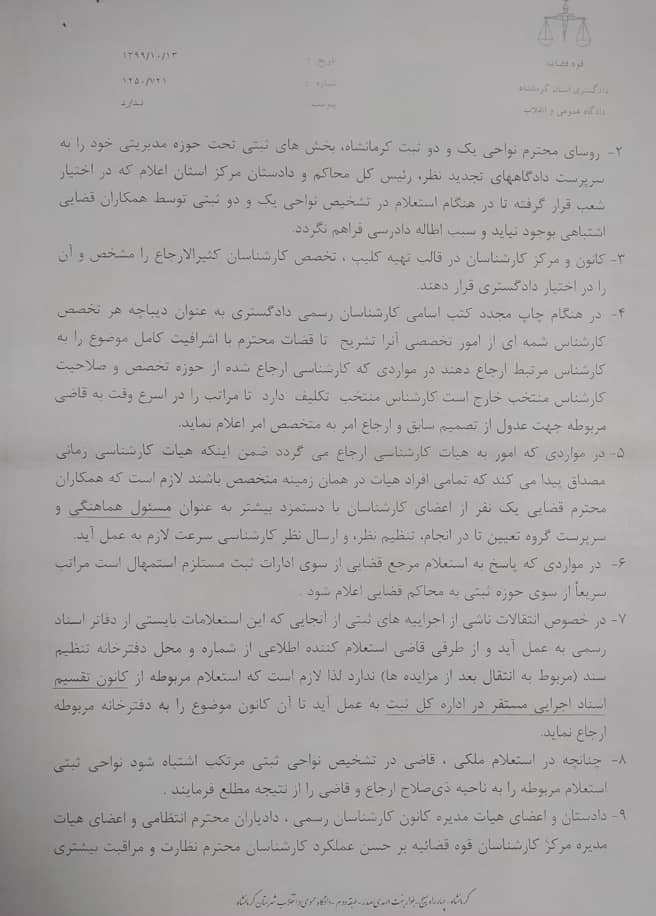 قوه قضائیه
دادگستری استان کرمانشاه
دادگاه عمومی و انقلاب
تاریخ: ۱۳۹۹/۱۰/۱۳
شماره: ۱۲۵۰/۷۲۱
پیوست ندارد
۲- روسای محترم نواحی یک و دو ثبت کرمانشاه، بخش های ثبتی تحت حوزه مدیریتی خود را به
سرپرست دادگاههای تجدید نظر، رئیس کل محاکم و دادستان مرکز استان اعلام که در اختیار
شعب قرار گرفته تا در هنگام استعلام در تشخیص نواحی یک و دو ثبتی توسط همکاران قضایی
اشتباهی بوجود نیاید و سبب اطاله دادرسی فراهم نگردد.
۳- کانون و مرکز کارشناسان در قالب تهیه کلیپ ، تخصص کارشناسان کثیرالارجاع را مشخص و آن
را در اختیار دادگستری قرار دهند.
۴- در هنگام چاپ مجدد کتب اسامی کارشناسان رسمی دادگستری به عنوان دیباچه هر تخصص
کارشناس شمه ای از امور تخصصی آنرا تشریح تا قضات محترم با اشرافیت کامل موضوع را به
کارشناس مرتبط ارجاع دهند در مواردی که کارشناسی ارجاع شده از حوزه تخصص و صلاحیت
کارشناس منتخب خارج است کارشناس منتخب تکلیف دارد تا مراتب را در اسرع وقت به قاضی
مربوطه جهت عدول از تصمیم سابق و ارجاع امر به متخصص امر اعلام نماید.
۵- در مواردی که امور به هیات کارشناسی ارجاع می گردد ضمن اینکه هیات کارشناسی رمانی
مصداق پیدا می کند که تمامی افراد هیات در همان زمینه متخصص باشند لازم است که همکاران
محترم قضایی یک نفر از اعضای کارشناسان با دستمزد بیشتر به عنوان مسئول هماهنگی و
سرپرست گروه تعیین تا در انجام، تنظیم نظر، و ارسال نظر کارشناسی سرعت لازم به عمل آید.
۶- در مواردی که پاسخ به استعلام مرجع قضایی از سوی ادارات ثبت مستلزم استمهال است مراتب
سریعاً از سوی حوزه ثبتی به محاکم قضایی اعلام شود .
۷- در خصوص انتقالات ناشی از اجراییه های ثبتی از آنجایی که این استعلامات بایستی از دفاتر اسناد
رسمی به عمل آید و از طرفی قاضی استعلام کننده اطلاعی از شماره و محل دفترخانه تنظیم
سند (مربوط به انتقال بعد از مزایده ها) ندارد لذا لازم است که استعلام مربوطه از کانون تقسیم
اسناد اجرایی مستقر در اداره کل ثبت به عمل آید تا آن کانون موضوع را به دفترخانه مربوطه
ارجاع نماید.
۸- چنانچه در استعلام ملکی ، قاضی در تشخیص نواحی ثبتی مرتکب اشتباه شود نواحی ثبتی
استعلام مربوطه را به ناحیه ذی‌صلاح ارجاع و قاضی را از نتیجه مطلع فرمایند .
۹- دادستان و اعضای هیات مدیره کانون کارشناسان رسمی ، دادیاران محترم انتظامی و اعضای هیات
مدیره مرکز کارشناسان قوه قضائیه بر حسن عملکرد کارشناسان محترم نظارت و مراقبت بیشتری
کرمانشاه - چهارراه بسیج - بلوار بنت الهدی صدر - طبقه دوم - دادگاه عمومی و انقلاب شهرستان کرمانشاه